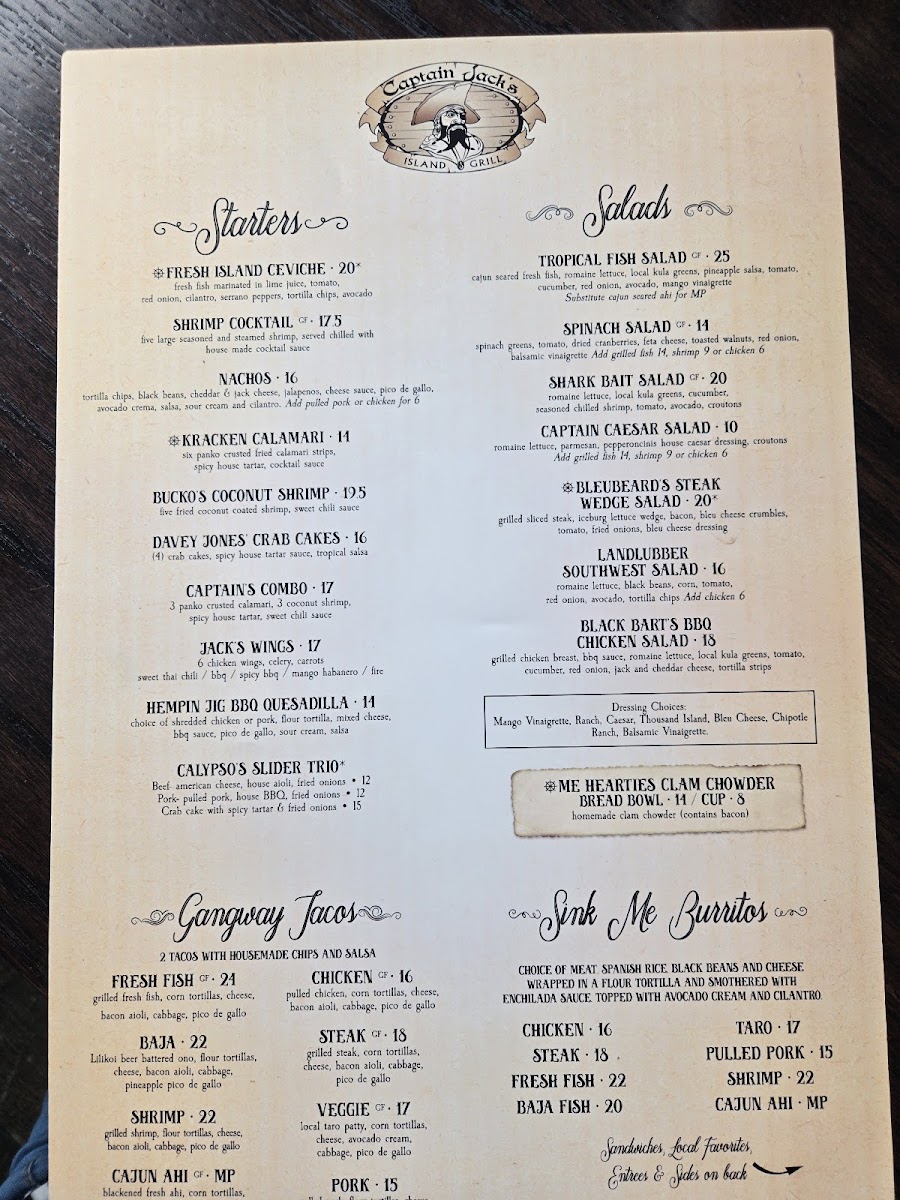 Captain Jack's
ISLAND GRILL
Starters
FRESH ISLAND CEVICHE · 20*
fresh fish marinated in lime juice, tomato,
red onion, cilantro, serrano peppers, tortilla chips, avocado
SHRIMP COCKTAIL GF · 17.5
five large seasoned and steamed shrimp, served chilled with
house made cocktail sauce
NACHOS · 16
tortilla chips, black beans, cheddar & jack cheese, jalapenos, cheese sauce, pico de gallo,
avocado crema, salsa, sour cream and cilantro. Add pulled pork or chicken for 6
KRACKEN CALAMARI · 14
six panko crusted fried calamari strips,
spicy house tartar, cocktail sauce
BUCKO'S COCONUT SHRIMP · 19.5
five fried coconut coated shrimp, sweet chili sauce
DAVEY JONES' CRAB CAKES · 16
(4) crab cakes, spicy house tartar sauce, tropical salsa
CAPTAIN'S COMBO · 17
3 panko crusted calamari, 3 coconut shrimp,
spicy house tartar, sweet chili sauce
JACK'S WINGS · 17
6 chicken wings, celery, carrots
sweet thai chili / bbq / spicy bbq / mango habanero / fire
HEMPIN JIG BBQ QUESADILLA · 14
choice of shredded chicken or pork, flour tortilla, mixed cheese,
bbq sauce, pico de gallo, sour cream, salsa
CALYPSO'S SLIDER TRIO*
Beef- american cheese, house aioli, fried onions • 12
Pork- pulled pork, house BBQ, fried onions • 12
Crab cake with spicy tartar & fried onions • 15
Salads
TROPICAL FISH SALAD GF · 25
cajun seared fresh fish, romaine lettuce, local kula greens, pineapple salsa, tomato,
cucumber, red onion, avocado, mango vinaigrette
Substitute cajun seared ahi for MP
SPINACH SALAD GF · 14
spinach greens, tomato, dried cranberries, feta cheese, toasted walnuts, red onion,
balsamic vinaigrette Add grilled fish 14, shrimp 9 or chicken 6
SHARK BAIT SALAD GF · 20
romaine lettuce, local kula greens, cucumber,
seasoned chilled shrimp, tomato, avocado, croutons
CAPTAIN CAESAR SALAD · 10
romaine lettuce, parmesan, pepperoncinis house caesar dressing, croutons
Add grilled fish 14, shrimp 9 or chicken 6
BLEUBEARD'S STEAK
WEDGE SALAD · 20*
grilled sliced steak, iceburg lettuce wedge, bacon, bleu cheese crumbles,
tomato, fried onions, bleu cheese dressing
LANDLUBBER
SOUTHWEST SALAD · 16
romaine lettuce, black beans, corn, tomato,
red onion, avocado, tortilla chips Add chicken 6
BLACK BART'S BBQ
CHICKEN SALAD · 18
grilled chicken breast, bbq sauce, romaine lettuce, local kula greens, tomato,
cucumber, red onion, jack and cheddar cheese, tortilla strips
Dressing Choices:
Mango Vinaigrette, Ranch, Caesar, Thousand Island, Bleu Cheese, Chipotle
Ranch, Balsamic Vinaigrette.
ME HEARTIES CLAM CHOWDER
BREAD BOWL · 14 / CUP · 8
homemade clam chowder (contains bacon)
Gangway Tacos
2 TACOS WITH HOUSEMADE CHIPS AND SALSA
FRESH FISH GF · 24
grilled fresh fish, corn tortillas, cheese,
bacon aioli, cabbage, pico de gallo
BAJA · 22
Lilikoi beer battered ono, flour tortillas,
cheese, bacon aioli, cabbage,
pineapple pico de gallo
SHRIMP · 22
grilled shrimp, flour tortillas, cheese,
bacon aioli, cabbage, pico de gallo
CAJUN AHI GF · MP
blackened fresh ahi, corn tortillas,
CHICKEN GF · 16
pulled chicken, corn tortillas, cheese,
bacon aioli, cabbage, pico de gallo
STEAK GF · 18
grilled steak, corn tortillas,
cheese, bacon aioli, cabbage,
pico de gallo
VEGGIE GF · 17
local taro patty, corn tortillas,
cheese, avocado cream,
cabbage, pico de gallo
PORK · 15
Sink Me Burritos
CHOICE OF MEAT, SPANISH RICE, BLACK BEANS AND CHEESE
WRAPPED IN A FLOUR TORTILLA AND SMOTHERED WITH
ENCHILADA SAUCE. TOPPED WITH AVOCADO CREAM AND CILANTRO.
CHICKEN · 16
STEAK · 18
FRESH FISH · 22
BAJA FISH · 20
TARO · 17
PULLED PORK · 15
SHRIMP · 22
CAJUN AHI · MP
Sandwiches, Local Favorites,
Entrees & Sides on back